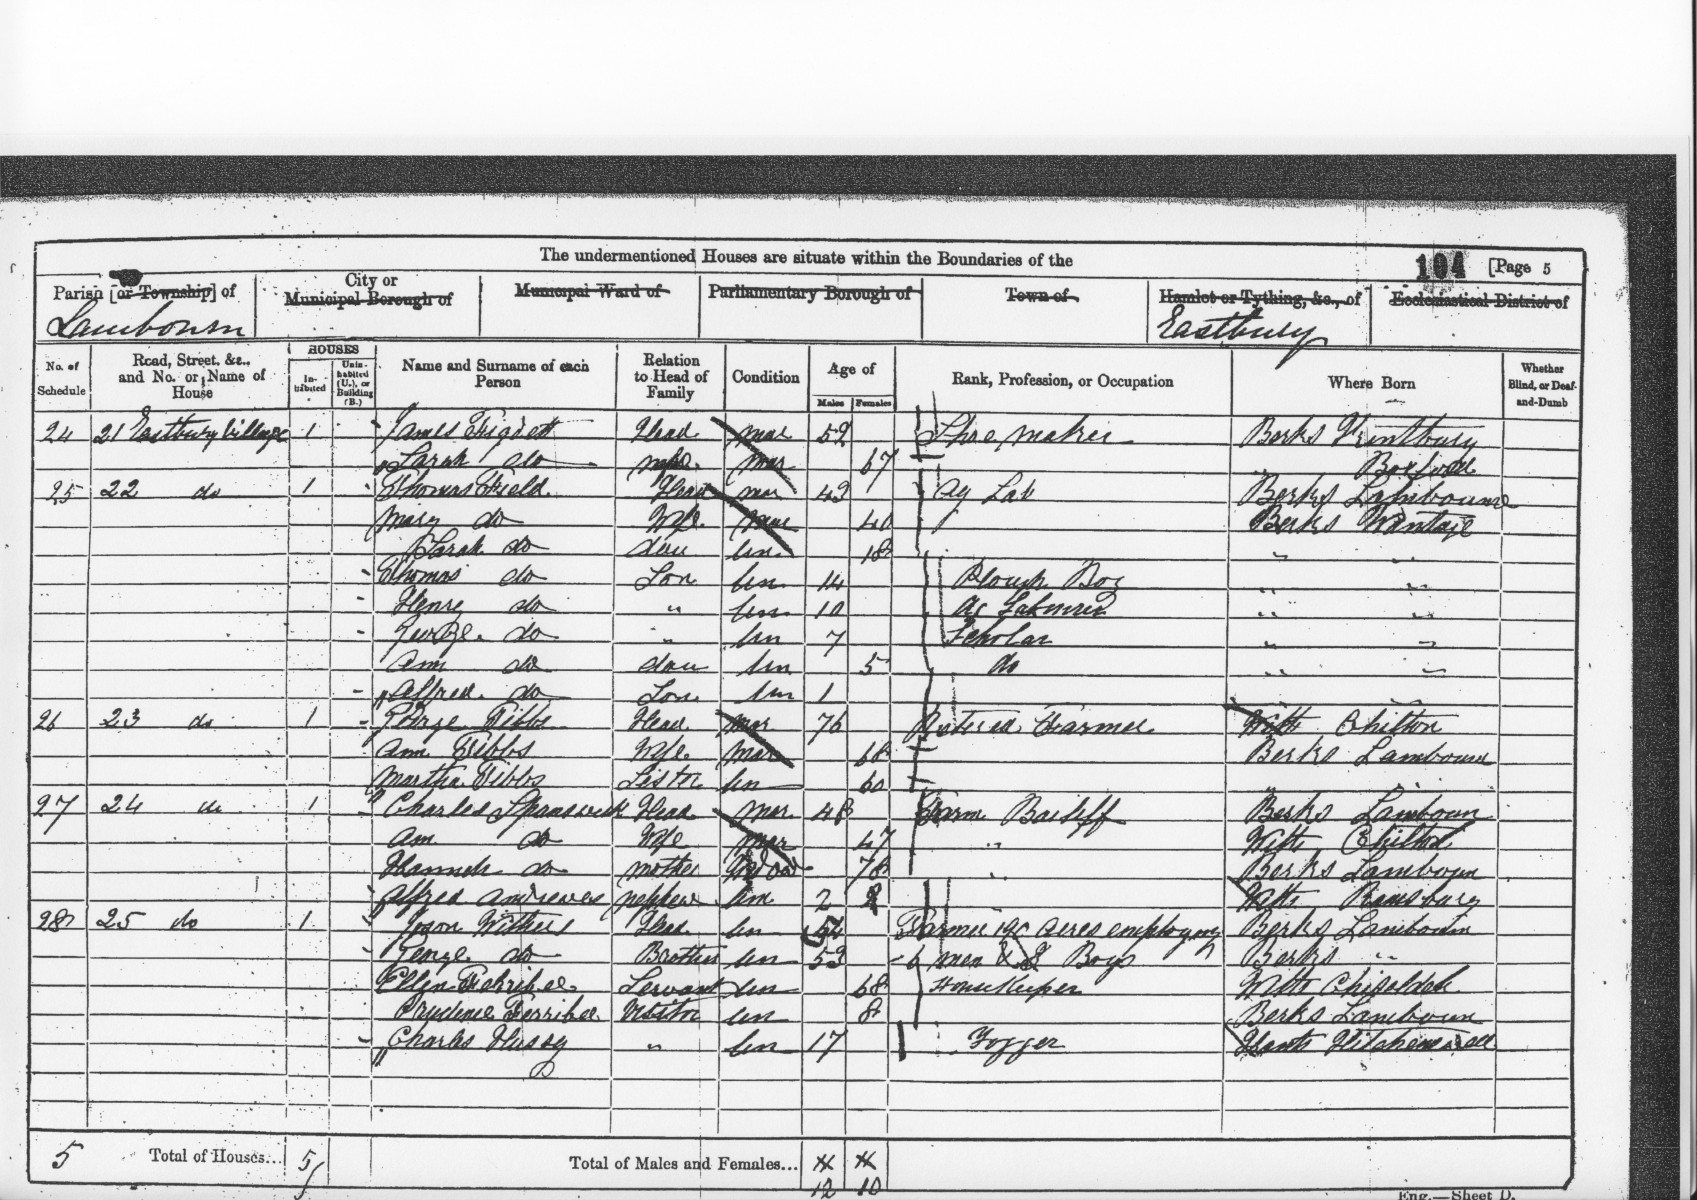 The undermentioned Houses are situate within the Boundaries of the
104 [Page 5
Parish [or Township] of
City or Municipal Borough of
Municipal Ward of
Parliamentary Borough of
Town of
Hamlet or Tything, &c., of
Ecclesiastical District of
Lambourn
Eastbury
No. of Schedule
Road, Street, &c., and No. or Name of House
HOUSES
Inhabited
Uninhabited (U.), or Building (B.)
Name and Surname of each Person
Relation to Head of Family
Condition
Age of
Males Females
Rank, Profession, or Occupation
Where Born
Whether Blind, or Deaf-and-Dumb
24 21 Eastbury Village 1 James Head mar 52 Shoe maker Berks Kintbury
Sarah do wife mar 67 " Boxford
25 22 do 1 Thomas Field Head mar 43 Ag Lab Berks Lambourne
Mary do Wife mar 40 Berks Wantage
Sarah do dau un 18 " "
Thomas do Son un 14 Plough Boy " "
Henry do " un 10 Ag Labourer " "
George do " un 7 Scholar " "
Ann do dau un 5 do " "
Alfred do Son un 1 " "
26 23 do 1 George Tibbs Head mar 76 Retired Farmer Wilts Chilton
Ann Tibbs Wife mar 68 Berks Lambourn
Martha Tibbs Sister un 60
27 24 do 1 Charles Spanswick Head mar 48 Farm Bailiff Berks Lambourn
Ann do Wife mar 47 " Wilts Chilton
Hannah do mother Widow 78 " Berks Lambourn
Alfred Andrewes nephew un 2 Wilts Ramsbury
28 25 do 1 Withers Head un 54 Farmer acres employing Berks Lambourn
George do Brother un 53 6 men & 3 Boys Berks "
Ellen Ferribee Servant un 68 House Keeper Wilts
Prudence Ferribee Visitor un 8 Berks Lambourn
Charles Hussy " un 17 Fogger Hants
5 Total of Houses... 5
Total of Males and Females...
12 10
Eng.—Sheet D.